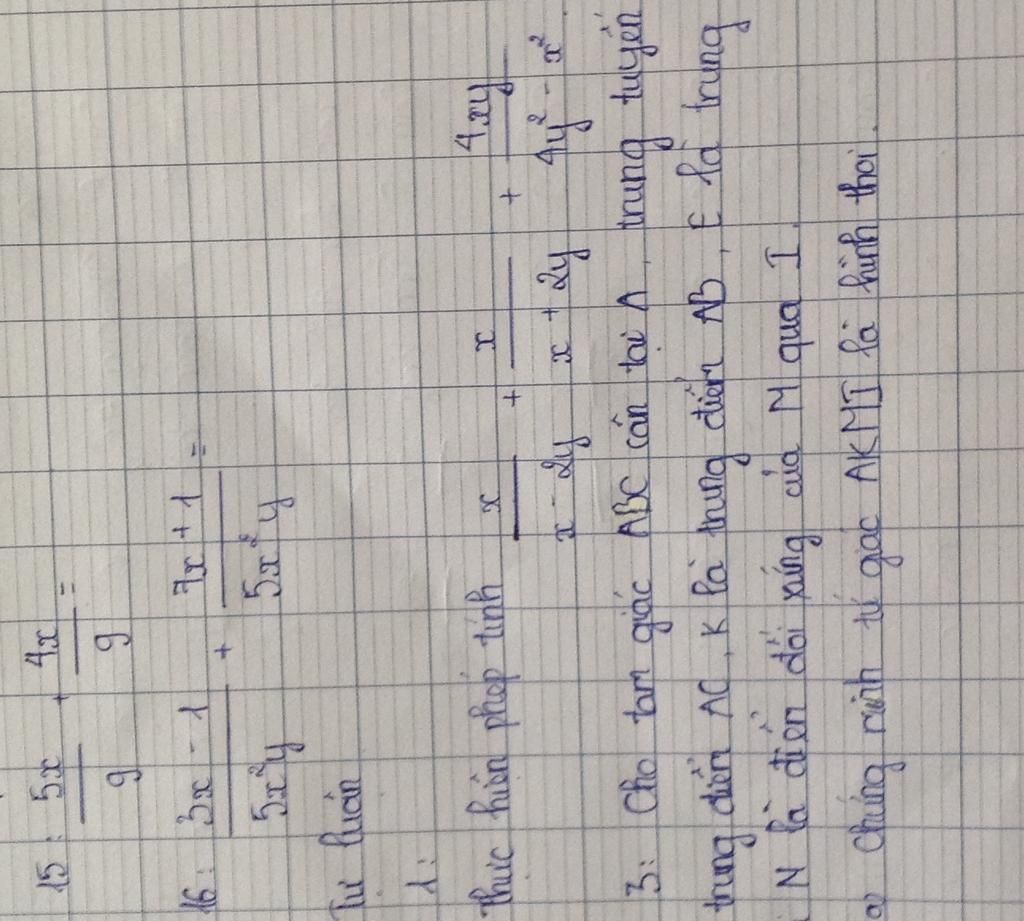 15: 5x/9 + 4x/9 =
16: 3x - 1/5x²y + 7x + 1/5x²y =
Tự luận
1:
Thực hiện phép tính x/x - 2y + x/x + 2y + 4xy/4y² - x²
3: Cho tam giác ABC cân tại A, trung tuyến
trung điểm AC, K là trung điểm AB, E là trung
N là điểm đối xứng của M qua I.
a, Chứng minh tứ giác AKMI là hình thoi.